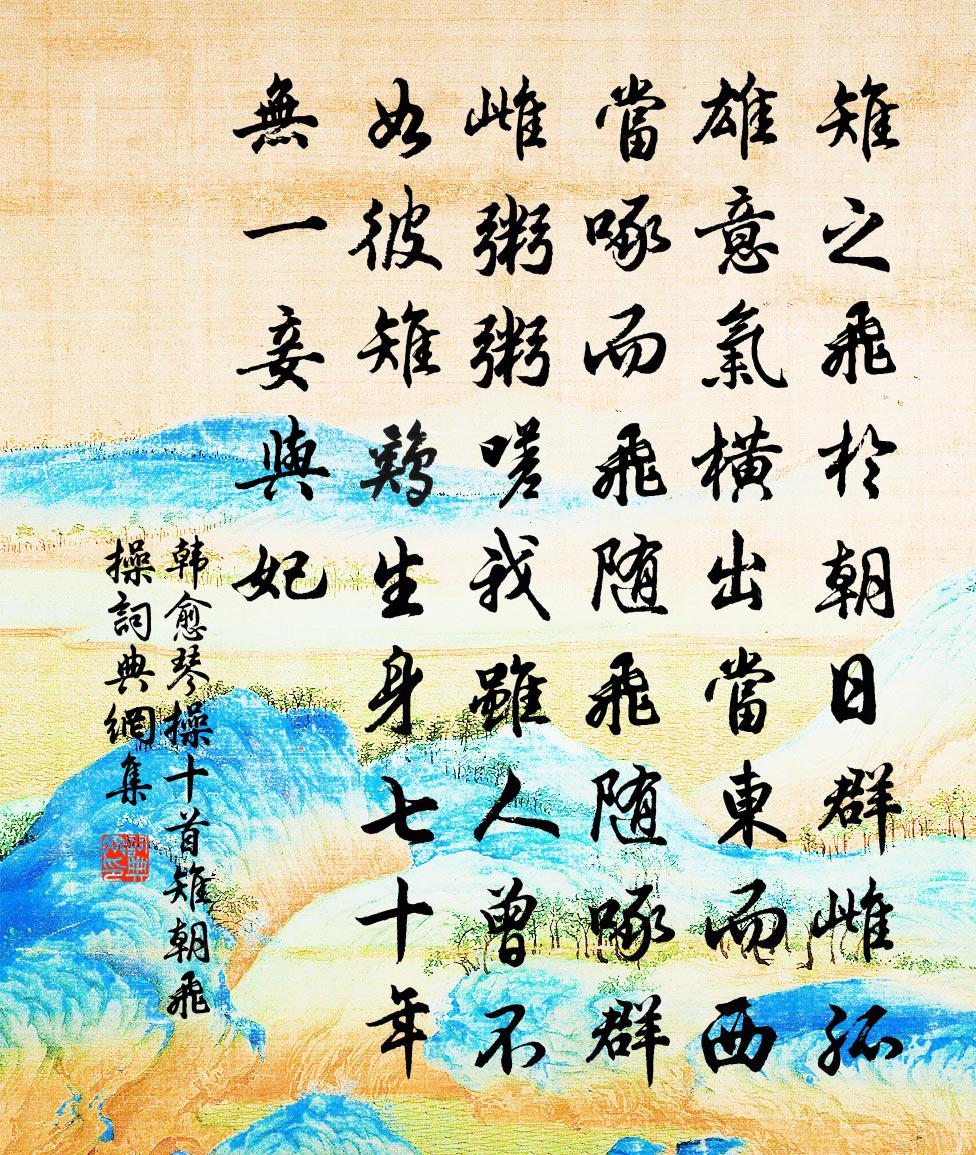 雉之飛於朝日群雌孤
雄意氣橫出當東而西
當啄而飛随飛随啄群
雌粥粥嗟我雖人曾不
如彼雉鶏生身七十年
無一妾與妃
韩愈琴操十首雉朝飛
操詞典網集